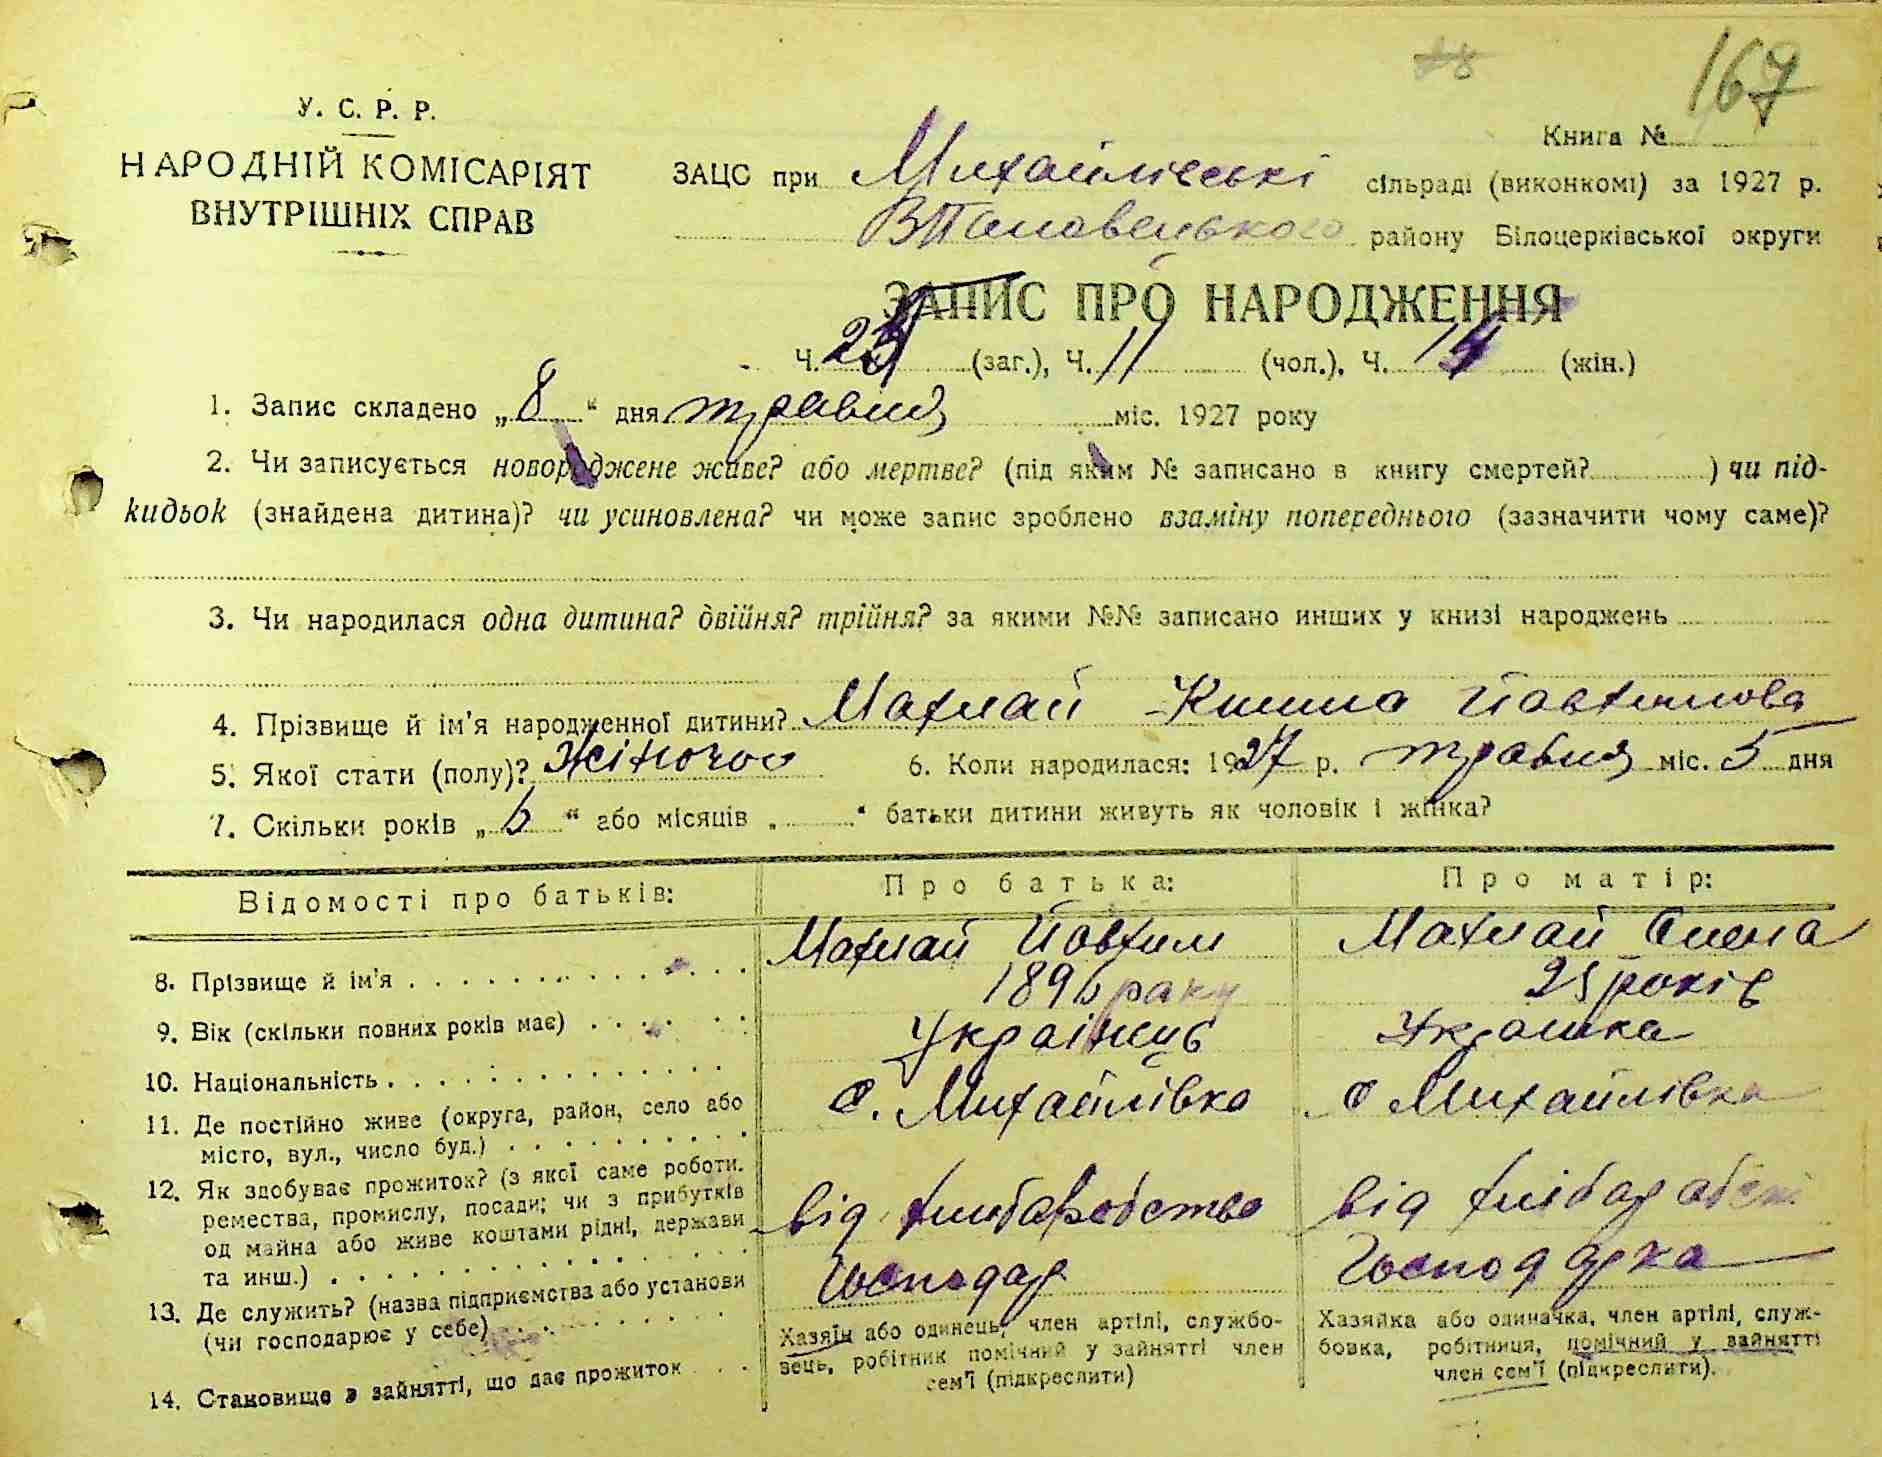 167
У. С. Р. Р.
Книга №
НАРОДНІЙ КОМІСАРІЯТ
ВНУТРІШНІХ СПРАВ
ЗАЦС при Михайлівські сільраді (виконкомі) за 1927 р.
району Білоцерківської округи
ЗАПИС ПРО НАРОДЖЕННЯ
Ч. (заг.), Ч. 11 (чол.), Ч. 14 (жін.)
1. Запис складено „8“ дня травня міс. 1927 року
2. Чи записується новороджене живе? або мертве? (під яким № записано в книгу смертей? ) чи під-
кидьок (знайдена дитина)? чи усиновлена? чи може запис зроблено взаміну попереднього (зазначити чому саме)?
3. Чи народилася одна дитина? двійня? трійня? за якими №№ записано инших у книзі народжень
4. Прізвище й ім'я народженної дитини? Махлай Йовхимова
5. Якої стати (полу)? Жіночої 6. Коли народилася: 1927 р. травня міс. 5 дня
7. Скільки років „6“ або місяців „ “ батьки дитини живуть як чоловік і жінка?
Відомості про батьків: Про батька: Про матір:
8. Прізвище й ім'я Махлай Йовхим Махлай Олена
9. Вік (скільки повних років має) 1896 року 25 років
10. Національність Українець Українка
11. Де постійно живе (округа, район, село або
місто, вул., число буд.) с. Михайлівка с Михайлівка
12. Як здобуває прожиток? (з якої саме роботи.
ремества, промислу, посади; чи з прибутків
од майна або живе коштами рідні, держави
та инш.) від від
13. Де служить? (назва підприємства або установи
(чи господарює у себе) Господар Господарка
14. Становище в зайнятті, що дає прожиток
Хазяїн або одинець, член артілі, службо-
вець, робітник помічний у зайнятті член
сем'ї (підкреслити)
Хазяйка або одиначка, член артілі, служ-
бовка, робітниця, помічний у зайнятті
член сем'ї (підкреслити).